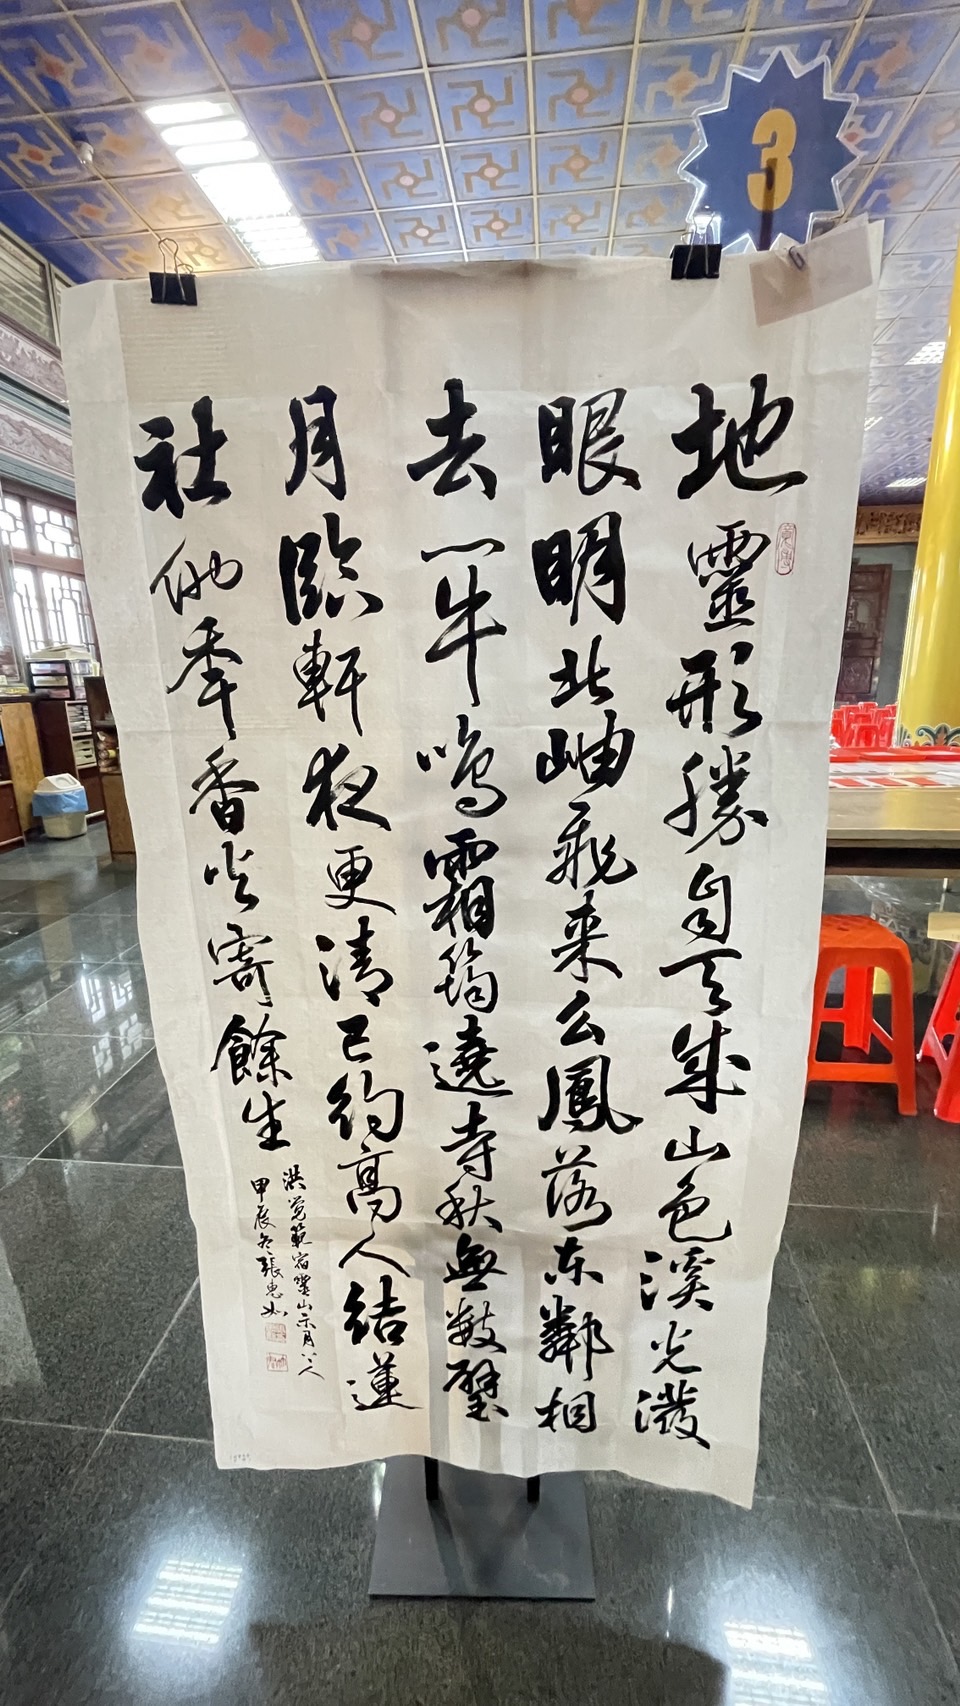 3
地靈形勝自天成山色溪光潑
眼明北岫飛来么鳳落东鄰相
去一牛鳴霜筠遶寺秋無數璧
月臨軒夜更清已約高人結蓮
社他年香火寄餘生
洪覺範宿靈山示月上人
甲辰冬張惠如